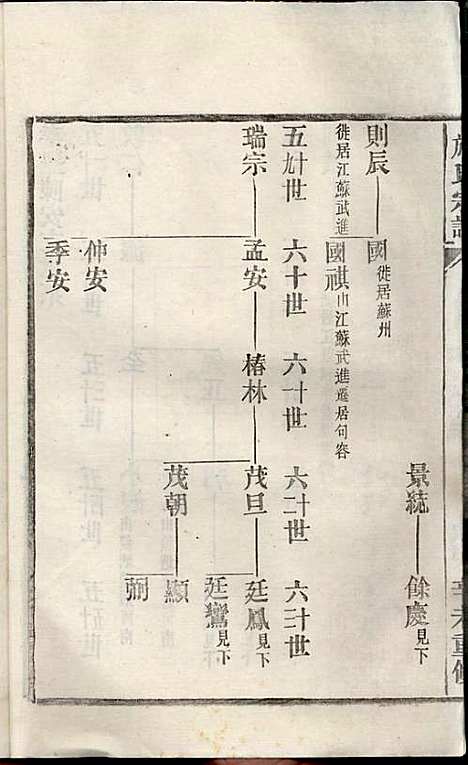 景統 餘慶見下
則辰 國徙居蘇州
徙居江蘇武進 國祺山江蘇武進遷居句容
五十九世 六十世 六十一世 六十二世 六十三世
瑞宗 孟安 椿林 茂旦 廷鳳見下
廷鸞見下
茂朝 顯
仲安
季安